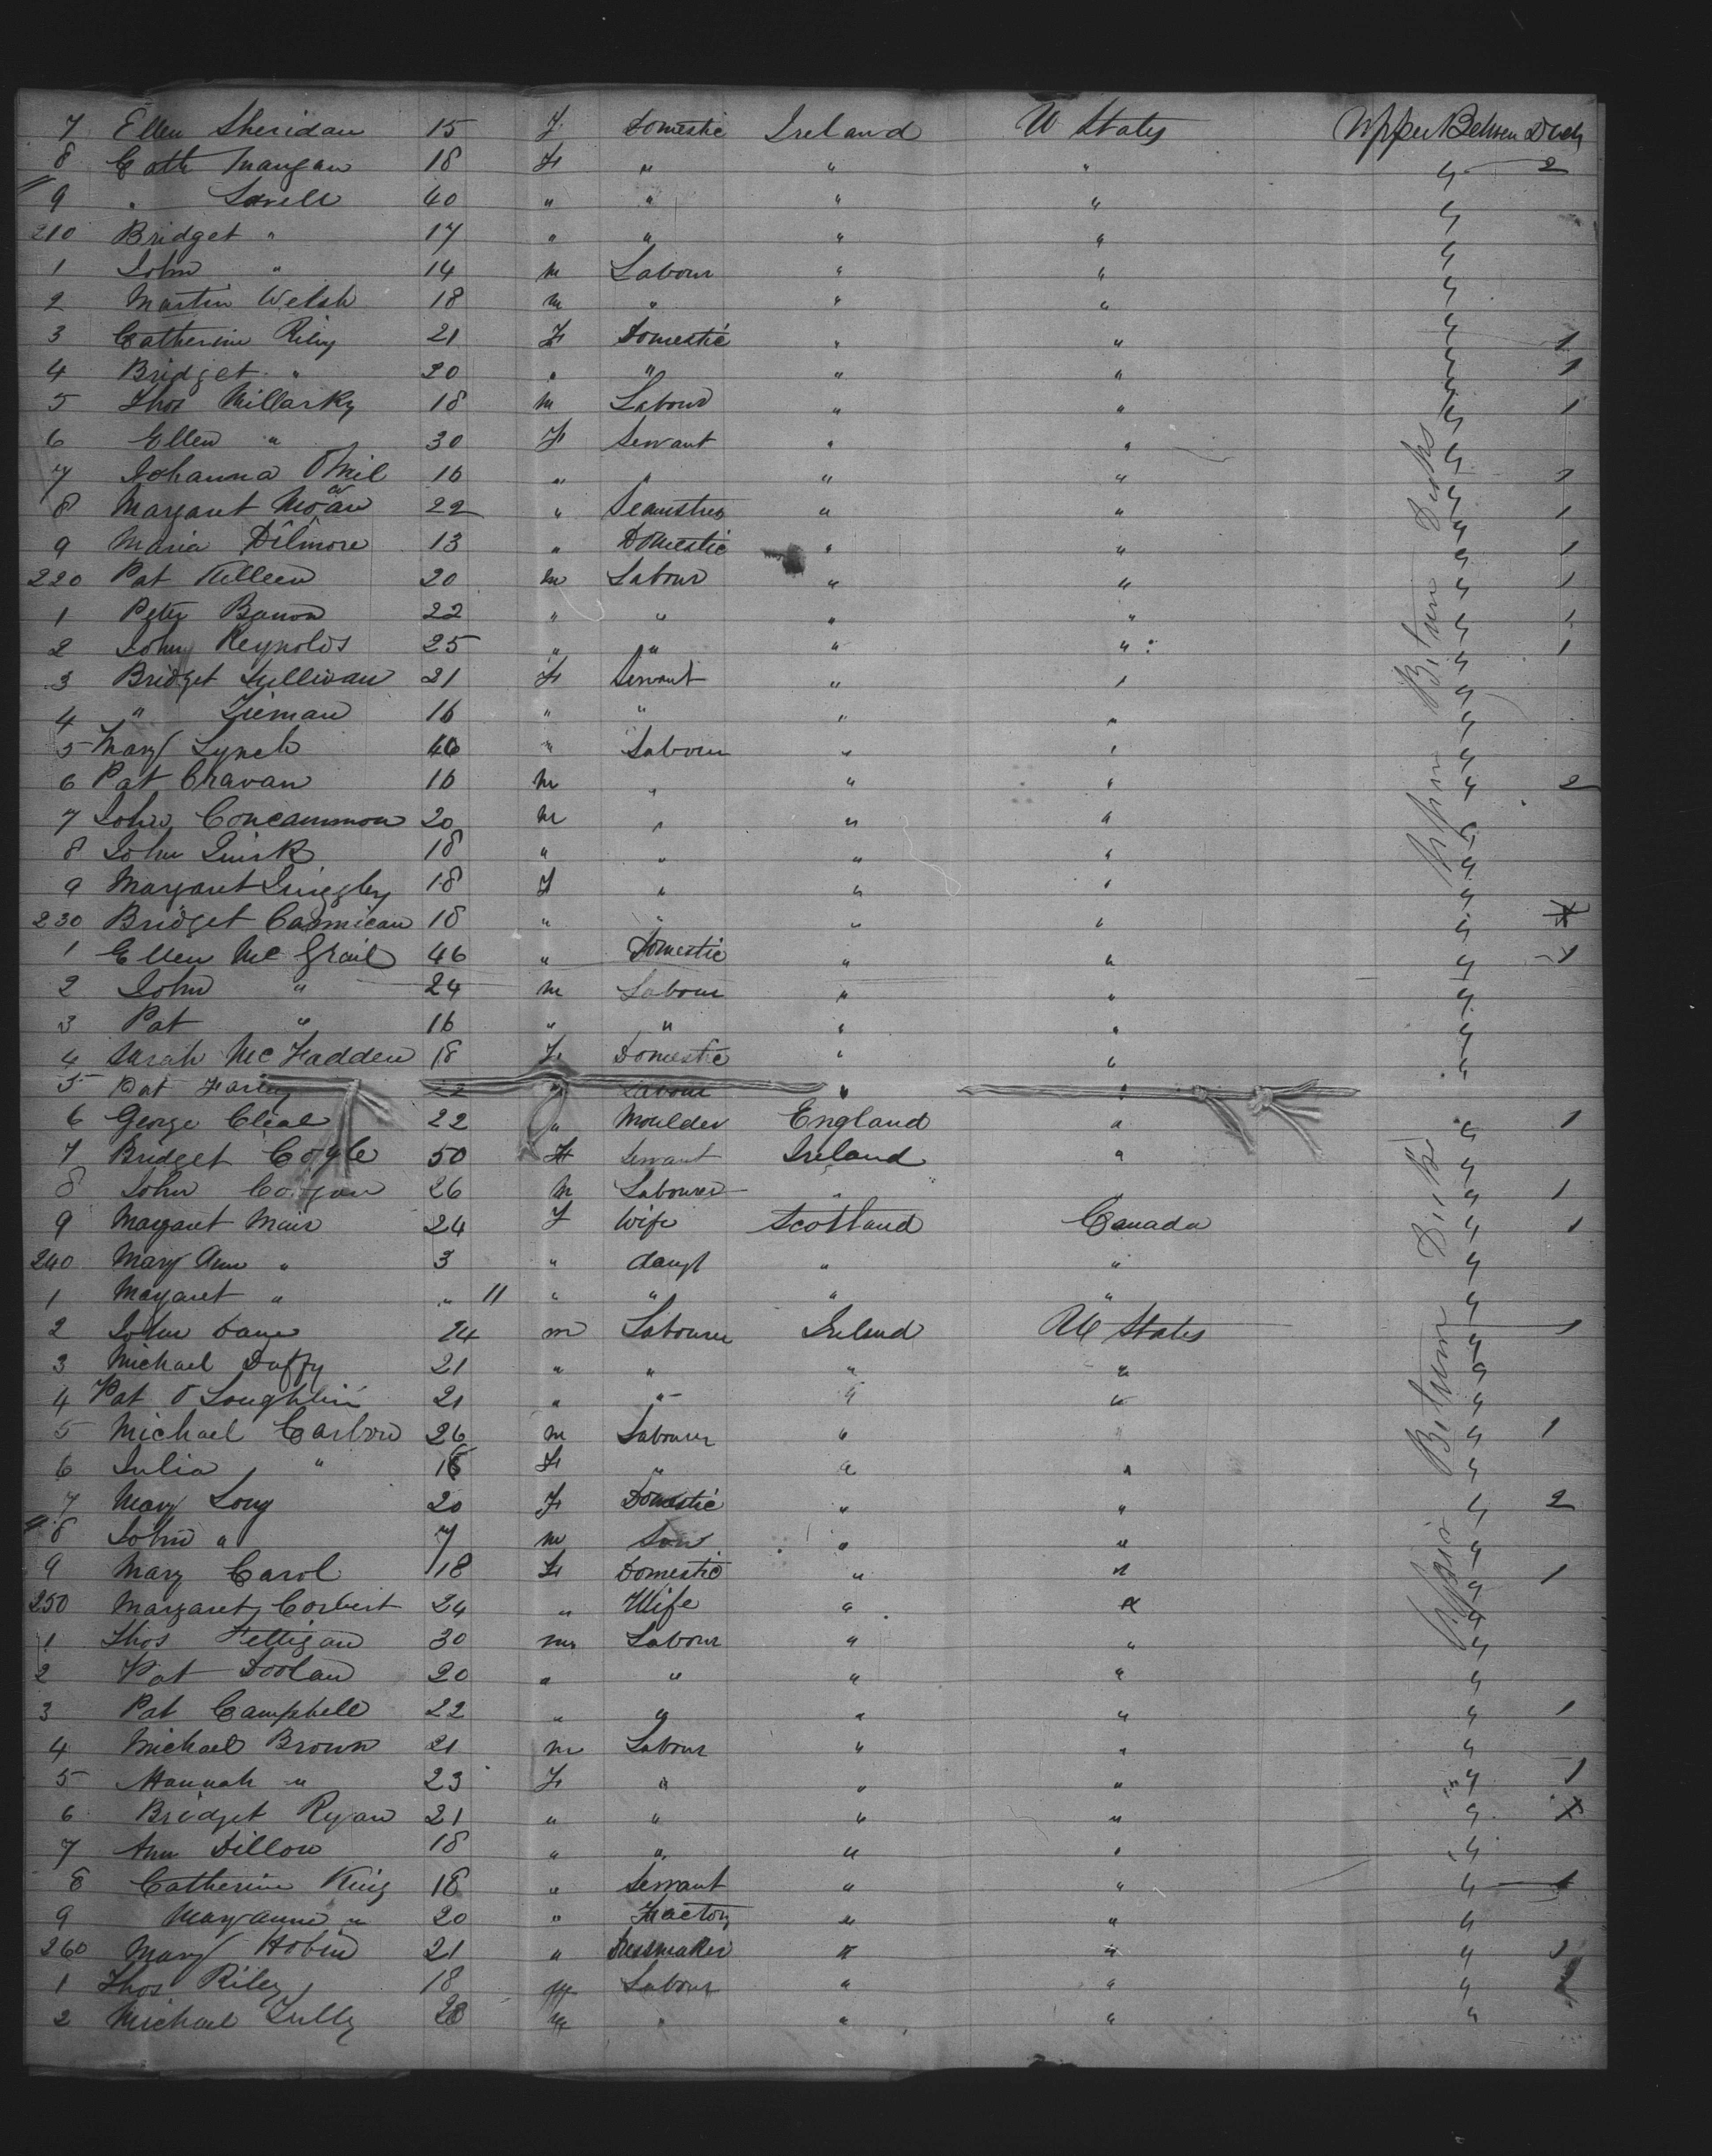 7 Ellen Sheridan 15 F Domestic Ireland U States Upper Between Deck
8 Cath Mangan 18 F " " " " 2
9 " Lavelle 40 " " " " "
210 Bridget " 17 " " " " "
1 John " 14 m Labour " " "
2 Martin Welsh 18 m " " " "
3 Catherine Riley 21 F Domestic " " " 1
4 Bridget " 20 " " " " " 1
5 Thos Millarky 18 m Labour " " " 1
6 Ellen " 30 F Servant " " "
7 Johanna O Neil 16 " " " " " 1
8 Margaret 22 " Seamstress " " " 1
9 Maria Dilmore 13 " Domestic " " " 1
220 Pat Killeen 20 m Labour " " " 1
1 Peter Banon 22 " " " " " 1
2 John Reynolds 25 " " " " " 1
3 Bridget Sullivan 21 F Servant " " "
4 " Tieman 16 " " " " "
5 Mary Lynch 46 " Labour " " "
6 Pat Cravan 16 m " " " " 2
7 John Concannon 20 m " " " "
8 John Quirk 18 " " " " "
9 Margaret Quiggley 18 F " " " "
230 Bridget 18 " " " " "
1 Ellen Mc Grail 46 " Domestic " " " 1
2 John " 24 m Labour " " "
3 Pat " 16 " " " " "
4 Sarah Mc Fadden 18 F Domestic " " "
5 Pat 22 " Labour " "
6 George Cleal 22 " Moulder England " " 1
7 Bridget Coyle 50 F Servant Ireland " "
8 John 26 m Labourer " " " 1
9 Margaret Mair 24 F Wife Scotland Canada " 1
240 Mary Ann " 3 " daugt " " "
1 Margaret " " 11 " " " " "
2 John 24 m Labourer Ireland U States 1
3 Michael Duffy 21 " " " " "
4 Pat O Loughlin 21 " " " " "
5 Michael Carbow 26 m Labourer " " " 1
6 Julia " 16 F " " " "
7 Mary Long 20 F Domestic " " " 2
8 John " 7 m Son " " "
9 Mary Carol 18 F Domestic " " " 1
250 Margaret Corbert 24 " Wife " " "
1 Thos Fettigan 30 m Labour " " "
2 Pat Doolan 20 " " " " "
3 Pat Campbell 22 " " " " " 1
4 Michael Brown 21 m Labour " " "
5 Hannah " 23 F " " " " 1
6 Bridget Ryan 21 " " " " " X
7 Ann Dillon 18 " " " " "
8 Catherine King 18 " Servant " " " 1
9 Mary Anne " 20 " Factory " " "
260 Mary Hobin 21 " Dressmaker " " " 1
1 Thos Riley 18 m Labour " " "
2 Michael Tully 20 m " " " "
Upper Between Decks
Upper Between Decks